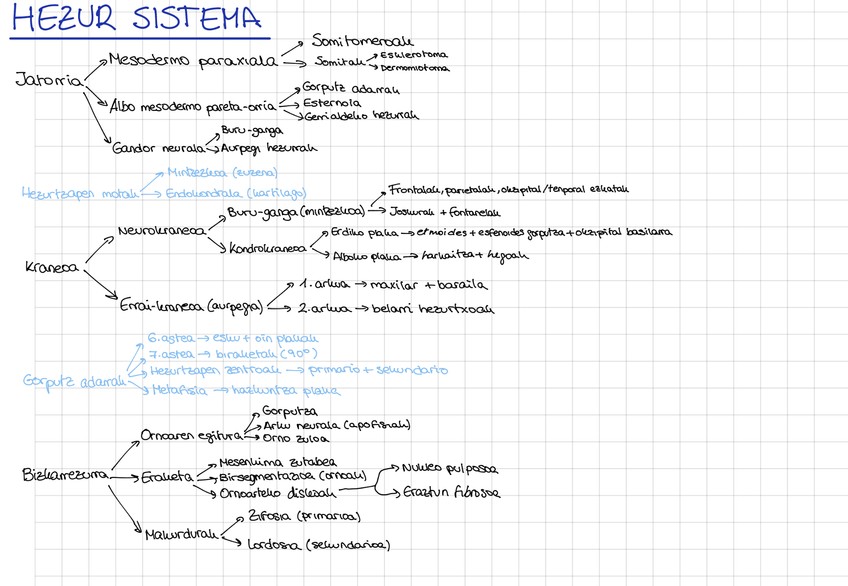 HEZUR SISTEMA
Jatorria
Mesodermo paraxiala
Somitomeroak
Somitak
Esklerotoma
Dermomiotoma
Albo mesodermo pareta-orria
Gorputz adarrak
Esternola
Gerrialdeko hezurrak
Gandor neurala
Buru-ganga
Aurpegi hezurrak
Hezurtzapen motak
Mintzezkoa (zuzena)
Endokondrala (kartilago)
Kraneoa
Neurokraneoa
Buru-ganga (mintzezkoa)
Frontalak, parietalak, okzipital/tenporal ezkatak
Josturak + fontanelak
Kondrokraneoa
Erdiko plaka → etmoides + esfenoides gorputza + okzipital basilarra
Alboko plaka → harkaitza + hegoak
Errai-kraneoa (aurpegia)
1. arkua → maxilar + baraila
2. arkua → belarri hezurtxoak
Gorputz adarrak
6. astea → esku + oin plakak
7. astea → biraketak (90º)
Hezurtzapen zentroak → primario + sekundario
Metafisia → hazkuntza plaka
Bizkarrezurra
Ornoaren egitura
Gorputza
Arku neurala (apofisiak)
Orno zuloa
Eraketa
Mesenkima zutabea
Birsegmentazioa (ornoak)
Ornoarteko diskoak
Nukleo pulposoa
Eraztun fibrosoa
Makurdurak
Zifosia (primarioa)
Lordosia (sekundarioa)